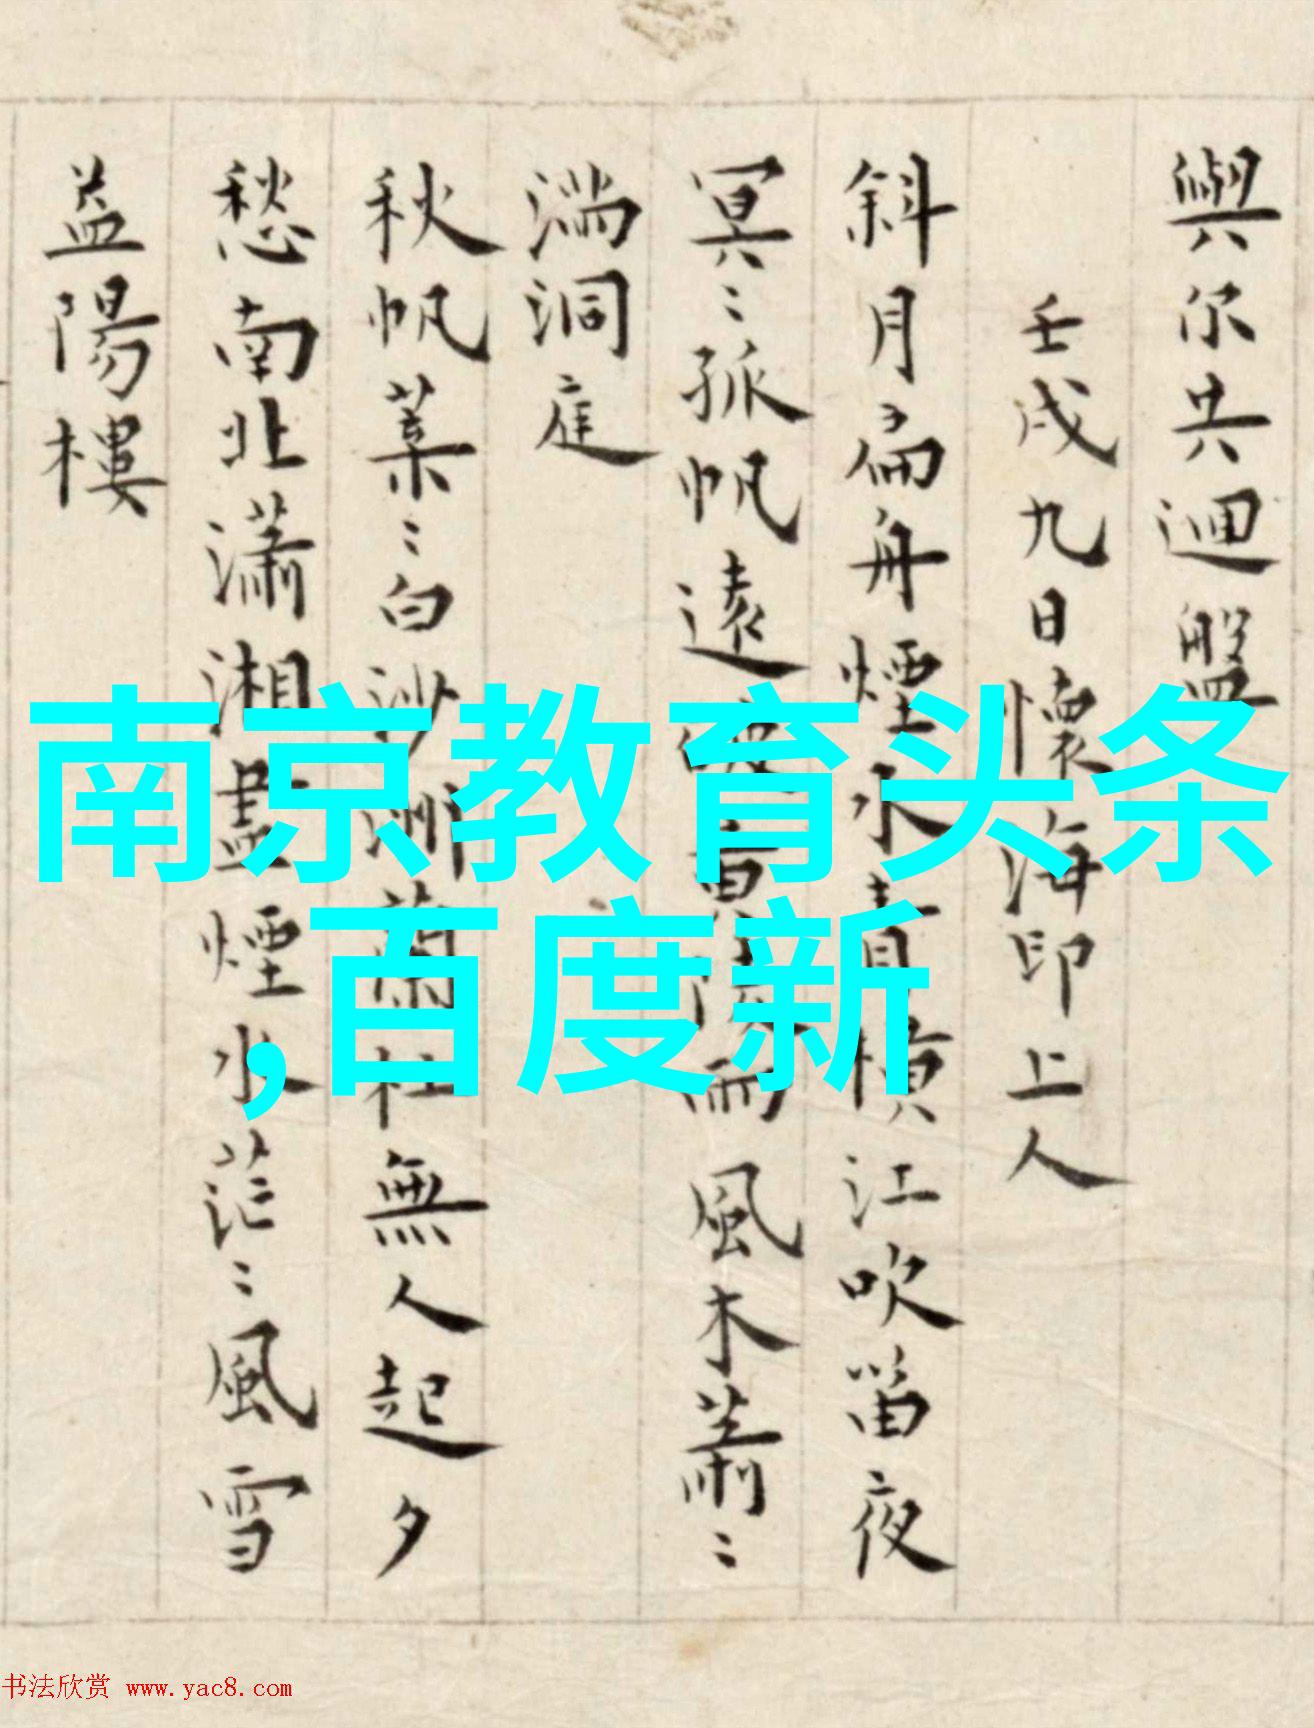 與尔共迴盤
壬戌九日懷海印上人
斜月扁舟煙水青横江吹笛夜
冥〻孤帆遠 黄陵雨風木蕭〻
湍洞庭
秋帆葉〻白沙洲蘭杜無人起夕
愁南北瀟湘盡煙水茫〻風雪
益陽樓
南京教育头条
,百度新
书法欣赏 www.yac8.com